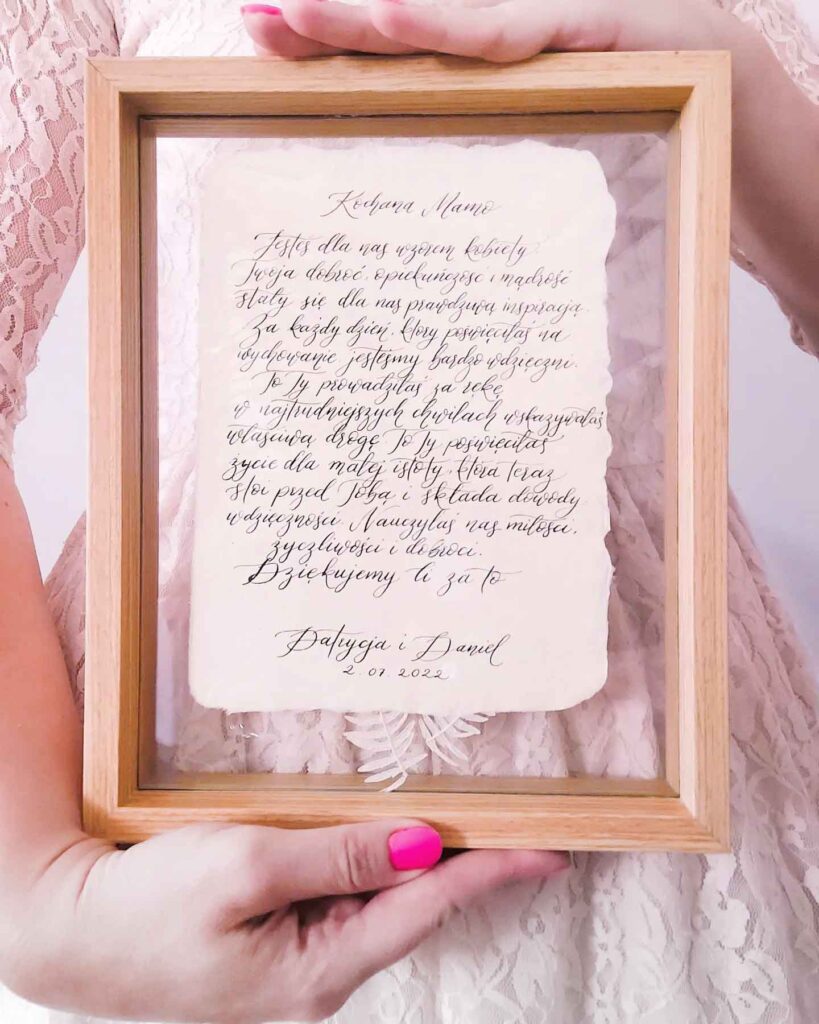 Kochana Mamo
Jesteś dla nas wzorem kobiety
Twoja dobroć, opiekuńczość i mądrość
stały się dla nas prawdziwą inspiracją.
Za każdy dzień, który poświęciłaś na
wychowanie jesteśmy bardzo wdzięczni.
To Ty prowadziłaś za rękę
w najtrudniejszych chwilach wskazywałaś
właściwą drogę. To Ty poświęciłaś
życie dla małej istoty, która teraz
stoi przed Tobą i składa dowody
wdzięczności. Nauczyłaś nas miłości,
życzliwości i dobroci.
Dziękujemy Ci za to
Patrycja i Daniel
2.07.2022